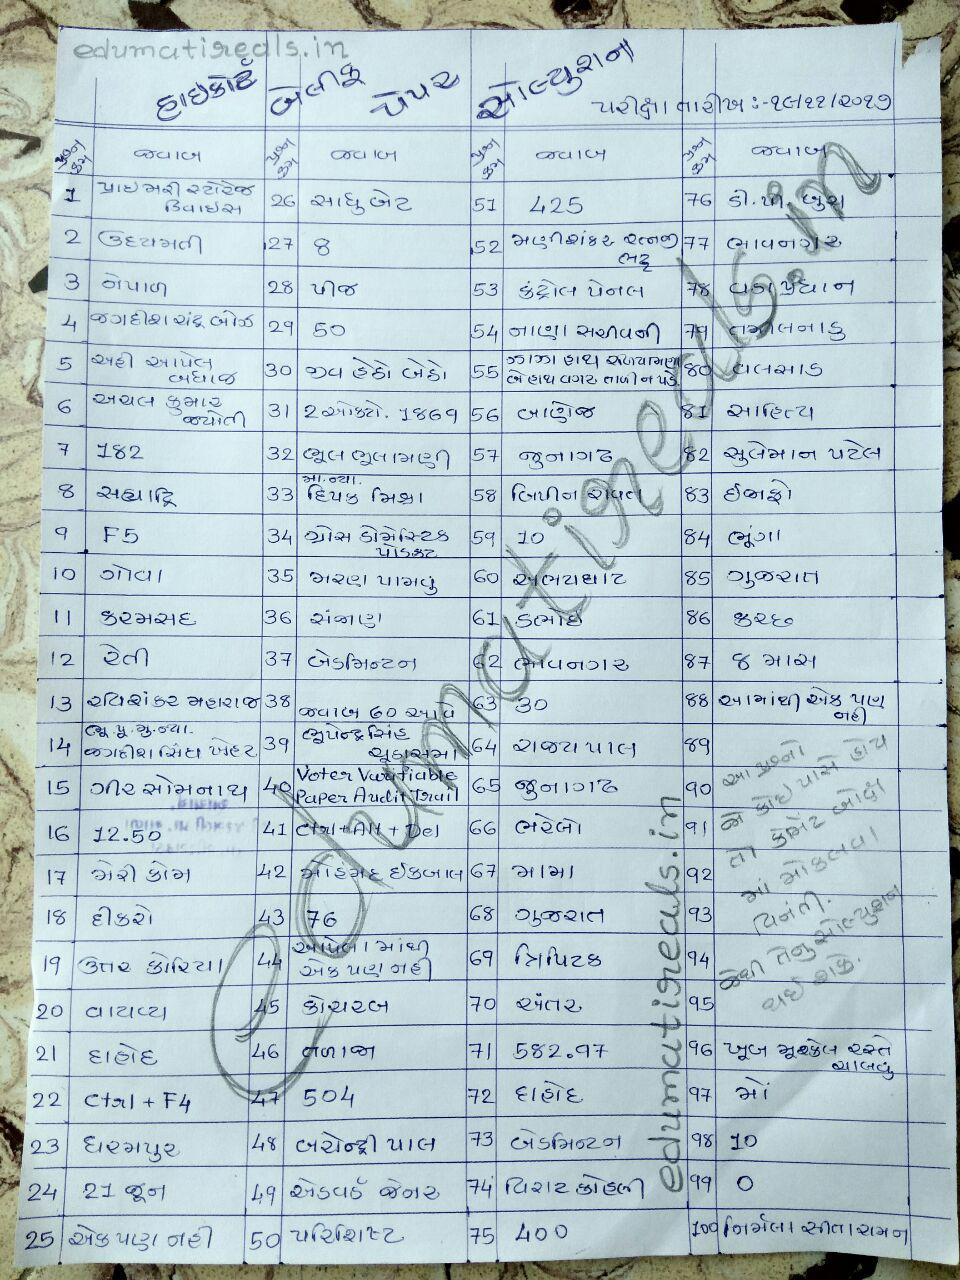 edumatireals.in
હાઇકોર્ટ બેલીફ પેપર સોલ્યુશન
પરીક્ષા તારીખ :- ૧૯/૧૧/૨૦૧૭
પ્રશ્ન ક્રમ જવાબ પ્રશ્ન ક્રમ જવાબ પ્રશ્ન ક્રમ જવાબ પ્રશ્ન ક્રમ જવાબ
1 પ્રાઇમરી સ્ટોરેજ ડિવાઇસ 26 સાધુ બેટ 51 425 76 ડી.પી. બુચ
2 ઉદયમતી 27 8 52 મણીશંકર રત્નજી ભટ્ટ 77 ભાવનગર
3 નેપાળ 28 પીજ 53 કંટ્રોલ પેનલ 78 વડા પ્રધાન
4 જગદીશ ચંદ્ર બોઝ 29 50 54 નાણા સચીવની 79 તમીલનાડુ
5 અહી આપેલ બધાજ 30 જીવ હેઠો બેઠો 55 ઝાઝા હાથ રળીયામણા બે હાથ વગર તાળી ન પડે 80 વલસાડ
6 અચલ કુમાર જ્યોતી 31 2 ઓક્ટો. 1869 56 બાણેજ 81 સાહિત્ય
7 182 32 ભૂલ ભૂલામણી 57 જુનાગઢ 82 સુલેમાન પટેલ
8 સહ્યાદ્રિ 33 મા. ન્યા. દિપક મિશ્રા 58 બિપીન રાવત 83 ઈજાફો
9 F5 34 ગ્રોસ ડોમેસ્ટિક પ્રોડક્ટ 59 10 84 ભૂંગા
10 ગોવા 35 મરણ પામવું 60 અભયઘાટ 85 ગુજરાત
11 કરમસદ 36 સંજાણ 61 ડભોઇ 86 કચ્છ
12 રેતી 37 બેડમિન્ટન 62 ભાવનગર 87 8 માસ
13 રવિશંકર મહારાજ 38 જવાબ 60 આવે 63 30 88 આમાંથી એક પણ નહી
14 ભૂ.પૂ.મુ.ન્યા. જગદીશ સિંઘ ખેહર 39 ભૂપેન્દ્રસિંહ ચૂડાસમા 64 રાજ્ય પાલ 89
15 ગીર સોમનાથ 40 Voter Varifiable Paper Audit Trail 65 જુનાગઢ 90
16 12.50 41 Ctrl + Alt + Del 66 ભરેલો 91
17 મેરી કોમ 42 મોહંમદ ઈકબાલ 67 મામા 92
18 દીકરો 43 76 68 ગુજરાત 93
19 ઉત્તર કોરિયા 44 આપેલા માંથી એક પણ નહી 69 ત્રિપિટક 94
20 વાયવ્ય 45 કોચરબ 70 અંતર 95
આ પ્રશ્નો જે કોઇ પાસે હોય તો કમેંટ બોક્ષ માં મોકલવા વિનંતી. જેથી તેનુ સોલ્યુશન થઇ શકે.
21 દાહોદ 46 તળાજા 71 582.97 96 ખૂબ મૂશ્કેલ રસ્તે ચાલવું
22 Ctrl + F4 47 504 72 દાહોદ 97 મોં
23 ધરમપુર 48 બચેન્દ્રી પાલ 73 બેડમિન્ટન 98 10
24 21 જૂન 49 એડવર્ડ જેનર 74 વિરાટ કોહલી 99 0
25 એક પણ નહી 50 પરિશિષ્ટ 75 400 100 નિર્મલા સીતારામન
edumatireals.in
edumatireals.in